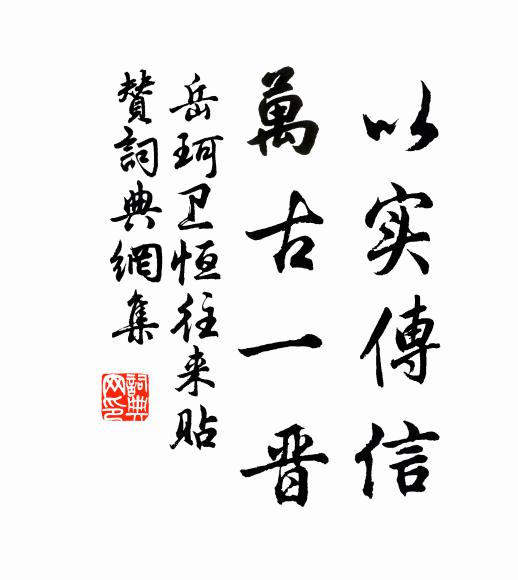 以实傳信
萬古一晋
岳珂卫恒往来贴
贊詞典網集
詞典
网印